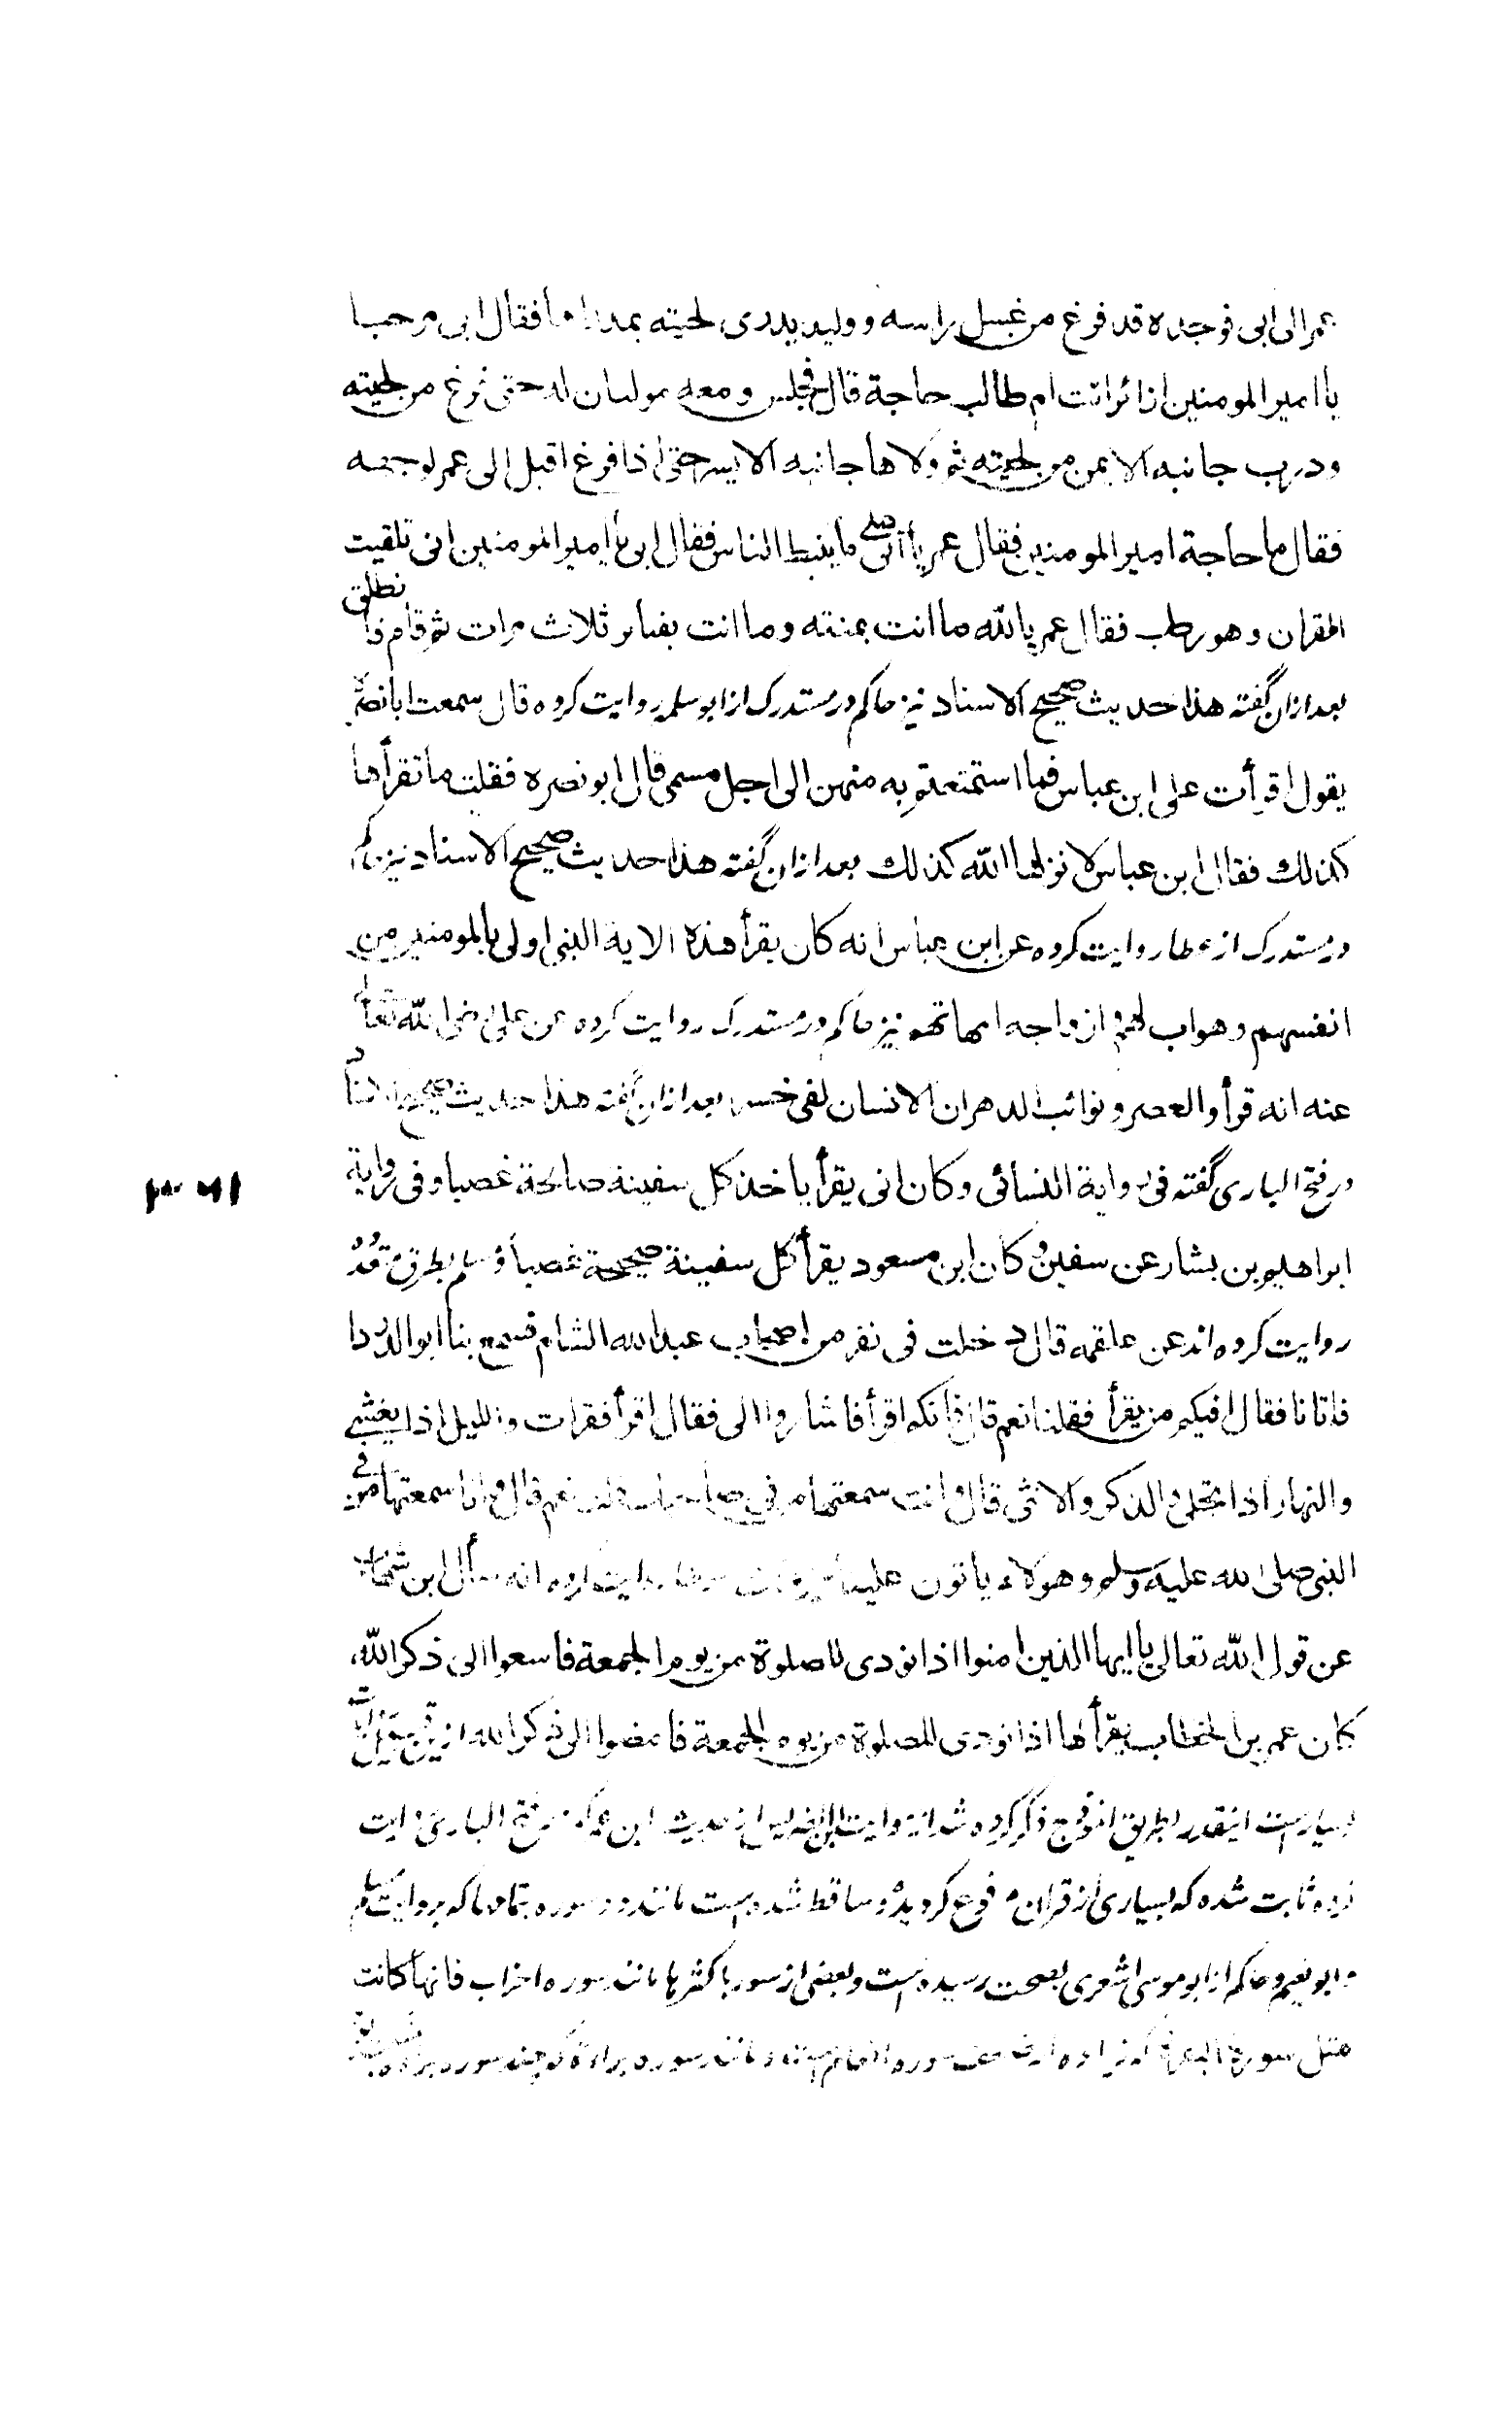 عمر الى ابى فوجده قد فرغ من غسل راسه و وليد يدرى لحيته بمدراها فقال ابى مرحبا
يا امير المومنين ازائرا انت ام طالب حاجة قال فجلس و معه موليان له حتى فرغ من لحيته
و درب جانبه الايمن من لحيته ثم ولاها جانبه الايسر حتى اذا فرغ اقبل الى عمر لوجهه
فقال ما حاجة امير المومنين فقال عمر يا ابى ما يقنط الناس فقال ابى يا امير المومنين انى تلقيت
القران و هو رطب فقال عمر يا لله ما انت بمنته و ما انت بصابر ثلاث مرات ثم قام فانطلق
بعد ازان گفته هذا حديث صحيح الاسناد نيز حاكم در مستدرك از ابو سلمه روايت كرده قال سمعت ابا نضرة
يقول اقرأت على ابن عباس فما استمتعتم به منهن الى اجل مسمى قال ابو نصره فقلت ما نقرأها
كذلك فقال ابن عباس لا نزلها الله كذلك بعد ازان گفته هذا حديث صحيح الاسناد نيز حاكم
در مستدرك از عطا روايت كرده عن ابن عباس انه كان يقرأ هذه الاية النبى اولى بالمومنين من
انفسهم و هو اب لهم و ازواجه امهاتهم نيز حاكم در مستدرك روايت كرده عن على رضى الله تعالى
عنه انه قرأ والعصر و نوائب الدهر ان الانسان لفى خسر بعد ازان گفته هذا حديث صحيح الاسناد
در فتح البارى گفته فى رواية النسائى و كان ابى يقرأ ياخذ كل سفينة صالحة غصبا و فى رواية
ابراهيم بن بشار عن سفين و كان ابن مسعود يقرأ كل سفينة صحيحة غصبا و مسلم بطرق متعدده
روايت كرده اند عن علقمه قال دخلت فى نفر من اصحاب عبد الله الشام فسمع بنا ابو الدردا
فاتانا فقال افيكم من يقرأ فقلنا نعم قال فايكم اقرأ فاشاروا الى فقال اقرأ فقرات والليل اذا يغشى
والنهار اذا تجلى والذكر والانثى قال انت سمعتها من فى صاحبك قلت نعم قال و انا سمعتها من فى
النبى صلى الله عليه وسلم و هولاء يابون علينا روايت كرده انه سأل ابن شهاب
عن قول الله تعالى يا ايها الذين امنوا اذا نودى للصلوة من يوم الجمعة فاسعوا الى ذكر الله
كان عمر بن الخطاب يقرأها اذا نودى للصلوة من يوم الجمعة فامضوا الى ذكر الله
بسيارست اينقدر بطريق انموذج ذكر كرده شد از حديث ابن عمر كه در فتح البارى روايت
كرده ثابت شده كه بسيارى از قران مرفوع گرديده و ساقط شده است مانند دو سوره بتمامها كه بروايت مسلم
و ابو نعيم و حاكم از ابو موسى اشعرى بصحت رسيده است و بعضى از سور باكثرها مانند سوره احزاب فانها كانت
مثل سورة البقرة مانند سوره براءة كه چند سوره براءة